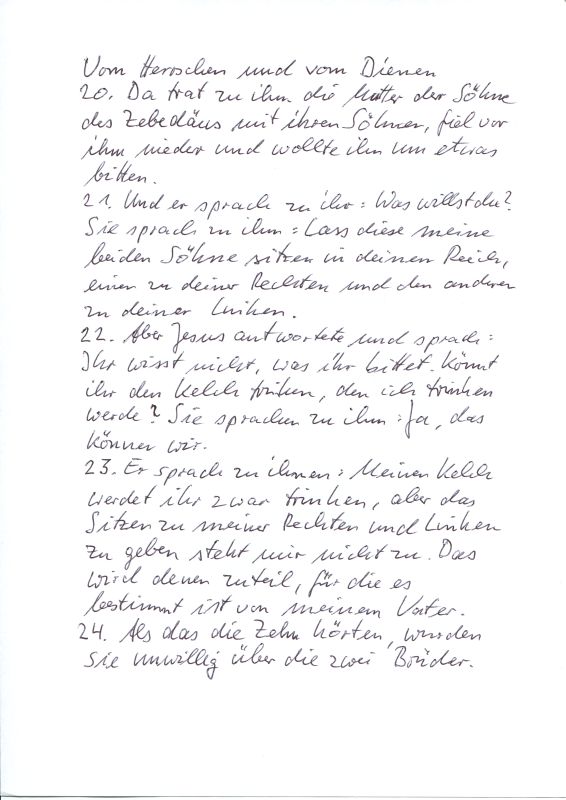 Vom Herrschen und vom Dienen
20. Da trat zu ihm die Mutter der Söhne
des Zebedäus mit ihren Söhnen, fiel vor
ihm nieder und wollte ihn um etwas
bitten.
21. Und er sprach zu ihr: Was willst du?
Sie sprach zu ihm: Lass diese meine
beiden Söhne sitzen in deinem Reich,
einen zu deiner Rechten und den anderen
zu deiner Linken.
22. Aber Jesus antwortete und sprach:
Ihr wisst nicht, was ihr bittet. Könnt
ihr den Kelch trinken, den ich trinken
werde? Sie sprachen zu ihm: Ja, das
können wir.
23. Er sprach zu ihnen: Meinen Kelch
werdet ihr zwar trinken, aber das
Sitzen zu meiner Rechten und Linken
zu geben steht mir nicht zu. Das
wird denen zuteil, für die es
bestimmt ist von meinem Vater.
24. Als das die Zehn hörten, wurden
sie unwillig über die zwei Brüder.